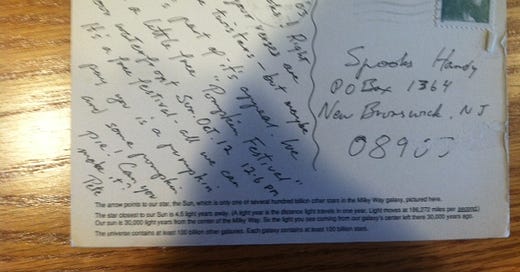 Right
your verses are
twisters - but maybe
part of its appeal. We
a little free "Pumpkin Festival"
on waterfront Sun. Oct. 12, 12-6 pm
It's a free festival - all we can
pay you is a pumpkin
and some pumpkin
pie! Can you
make it?
Pete
Spooks Handy
PO Box 1364
New Brunswick, NJ
08903
The arrow points to our star, the Sun, which is only one of several hundred billion other stars in the Milky Way galaxy, pictured here.
The star closest to our Sun is 4.5 light years away. (A light year is the distance light travels in one year. Light moves at 186,272 miles per second.)
Our sun is 30,000 light years from the center of the Milky Way. So the light you see coming from our galaxy's center left there 30,000 years ago.
The universe contains at least 100 billion other galaxies. Each galaxy contains at least 100 billion stars.